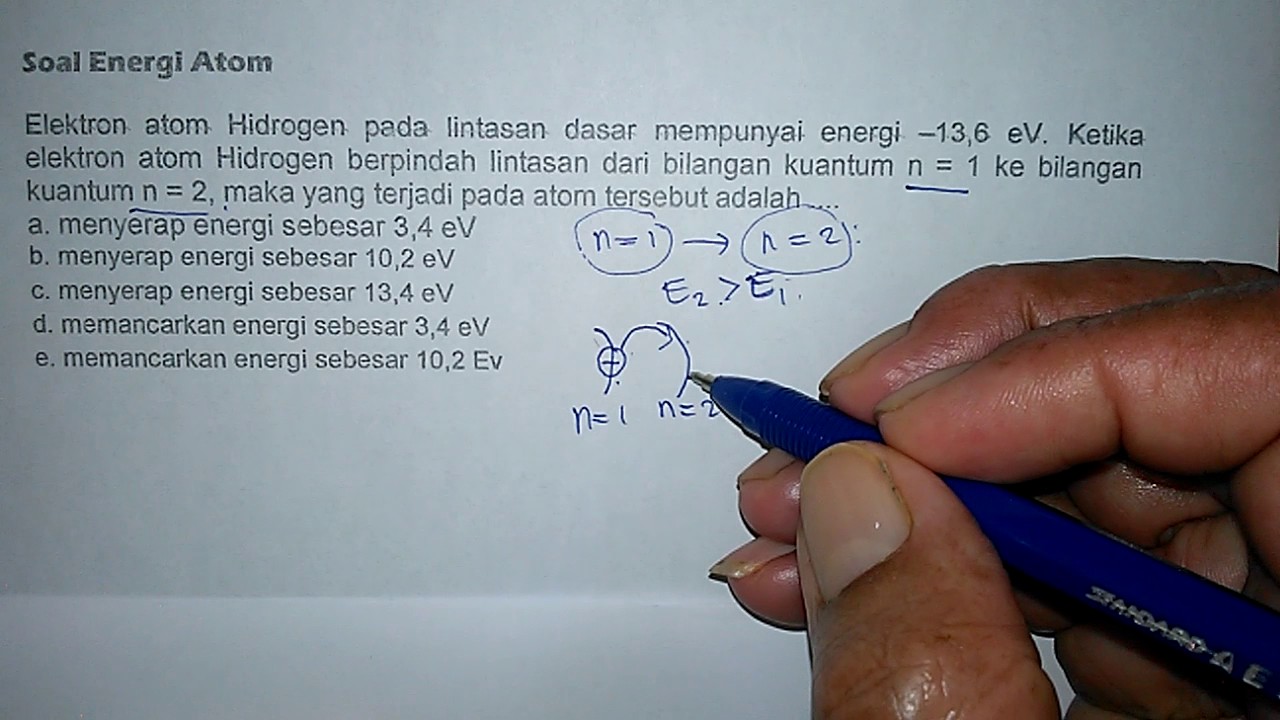 Soal Energi Atom
Elektron atom Hidrogen pada lintasan dasar mempunyai energi –13,6 eV. Ketika
elektron atom Hidrogen berpindah lintasan dari bilangan kuantum n = 1 ke bilangan
kuantum n = 2, maka yang terjadi pada atom tersebut adalah....
a. menyerap energi sebesar 3,4 eV
b. menyerap energi sebesar 10,2 eV
c. menyerap energi sebesar 13,4 eV
d. memancarkan energi sebesar 3,4 eV
e. memancarkan energi sebesar 10,2 Ev
n=1 → n=2
E₂ > E₁
+
n=1 n=2